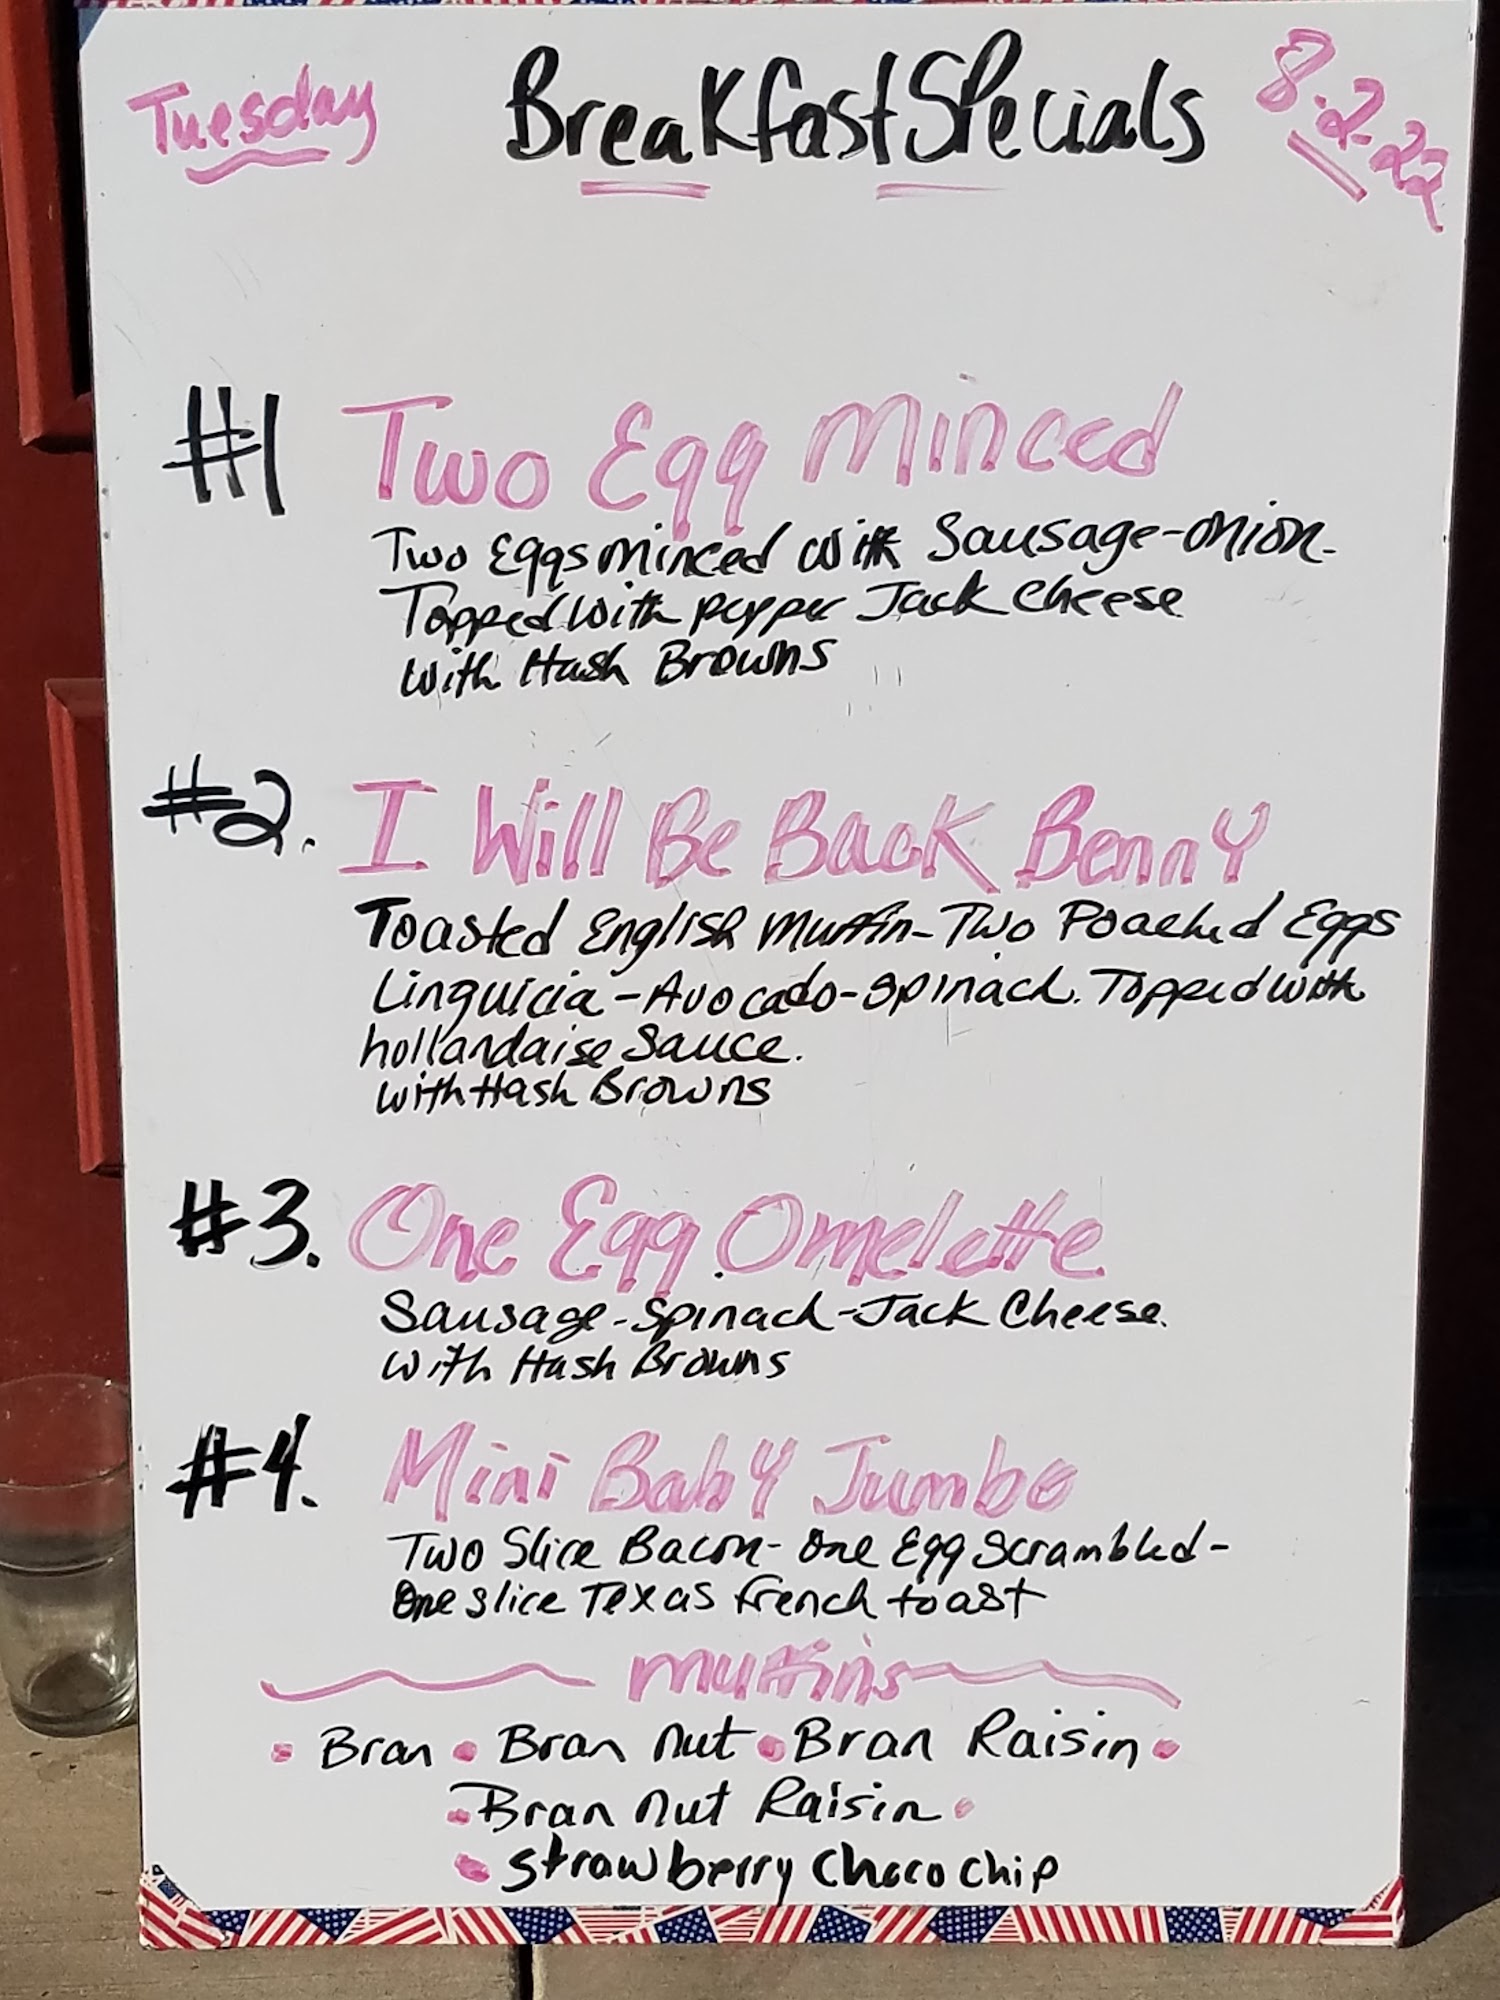 Tuesday Breakfast Specials 8.2.22
#1 Two Egg Minced
Two Eggs Minced with Sausage-Onion-
Topped with pepper Jack Cheese
with Hash Browns
#2. I Will Be Back Benny
Toasted English Muffin-Two Poached Eggs
Linguicia-Avocado-Spinach. Topped with
hollandaise Sauce.
with Hash Browns
#3. One Egg Omelette
Sausage-Spinach-Jack Cheese.
with Hash Browns
#4. Mini Baby Jumbo
Two Slice Bacon-One Egg Scrambled-
One slice Texas French toast
Muffins
• Bran • Bran Nut • Bran Raisin •
• Bran Nut Raisin •
• Strawberry Choco Chip